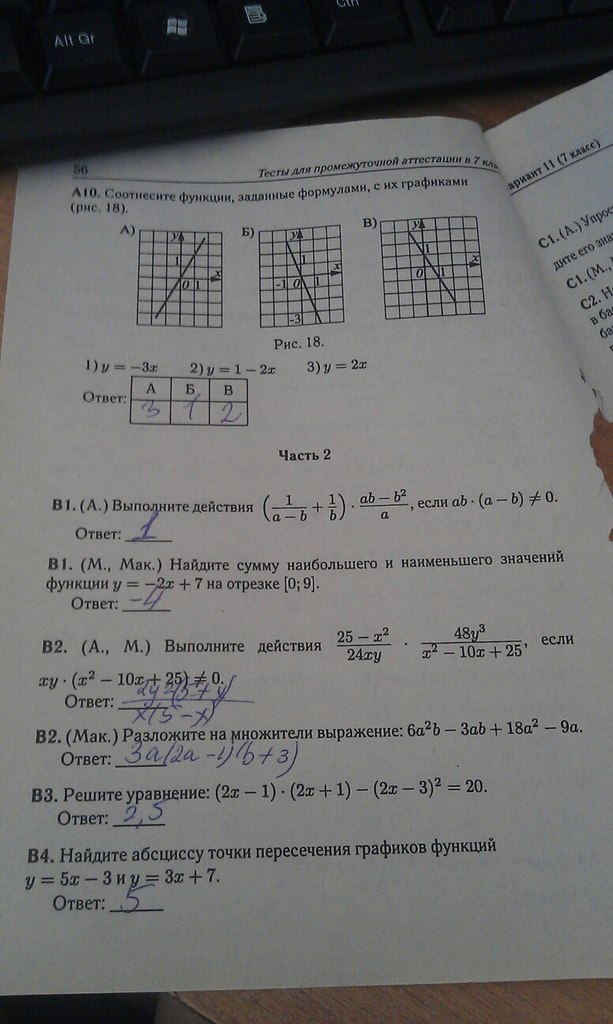 Alt Gr
Ctrl
56
Тесты для промежуточной аттестации в 7 кла
А10. Соотнесите функции, заданные формулами, с их графиками
(рис. 18).
А) Б) В)
y y y
1 1 1
x x x
0 1 -1 0 1 0 1
-3
Рис. 18.
1) y = −3x 2) y = 1 − 2x 3) y = 2x
А Б В
Ответ: 3 1 2
Часть 2
В1. (А.) Выполните действия (1/(a − b) + 1/b) · (ab − b²)/a, если ab · (a − b) ≠ 0.
Ответ: 1
В1. (М., Мак.) Найдите сумму наибольшего и наименьшего значений
функции y = −2x + 7 на отрезке [0; 9].
Ответ: -4
В2. (А., М.) Выполните действия (25 − x²)/(24xy) · 48y³/(x² − 10x + 25), если
xy · (x² − 10x + 25) ≠ 0.
Ответ:
В2. (Мак.) Разложите на множители выражение: 6a²b − 3ab + 18a² − 9a.
Ответ: 3a(2a -1)(b+3)
В3. Решите уравнение: (2x − 1) · (2x + 1) − (2x − 3)² = 20.
Ответ: 2,5
В4. Найдите абсциссу точки пересечения графиков функций
y = 5x − 3 и y = 3x + 7.
Ответ: 5
ариант 11 (7 класс)
С1. (А.) Упрос
дите его зна
С1. (М.,
С2. Н
в ба
ба